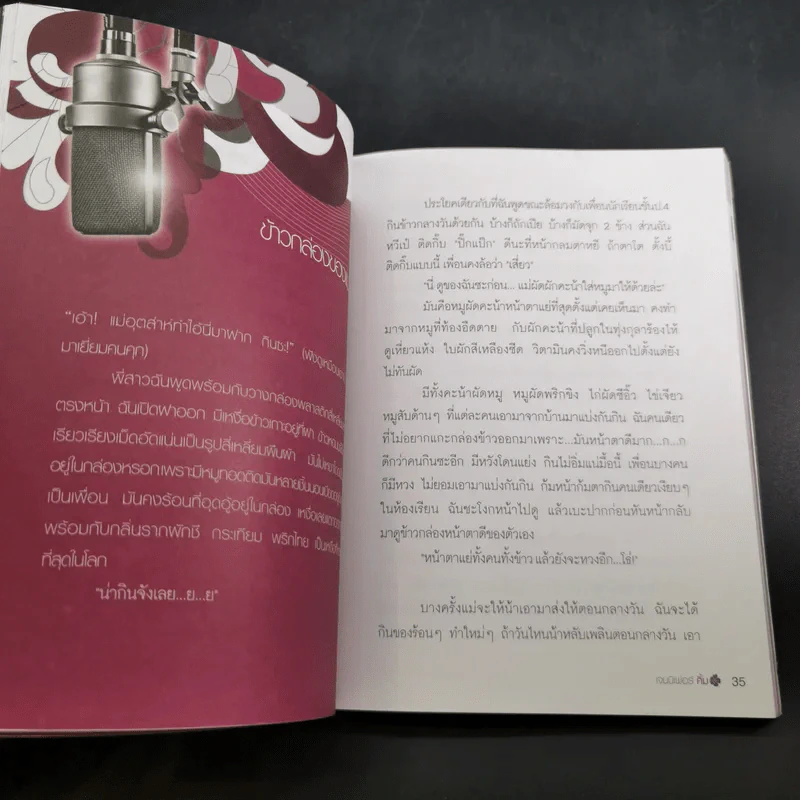 ข้าวกล่องของ
"เอ้า! แม่อุตส่าห์ทำไอ้นี่มาฝาก กินซะ!" (ฟังดูเหมือน
มาเยี่ยมคนคุก)
พี่สาวฉันพูดพร้อมกับวางกล่องพลาสติกสี่เหลี่ยม
ตรงหน้า ฉันเปิดฝาออก มีเหงื่อข้าวเกาะอยู่ที่ฝา
เรียวเรียงเม็ดอัดแน่นเป็นรูปสี่เหลี่ยมผืนผ้า มัน
อยู่ในกล่องหรอกเพราะมีหมูทอดติดมันหลายชิ้นนอน
เป็นเพื่อน มันคงร้อนที่อุดอู้อยู่ในกล่อง
พร้อมกับกลิ่นรากผักชี กระเทียม พริกไทย
ที่สุดในโลก
"น่ากินจังเลย...ย...ย"
ประโยคเดียวกับที่ฉันพูดขณะล้อมวงกับเพื่อนนักเรียนชั้นป.4
กินข้าวกลางวันด้วยกัน บ้างก็ถักเปีย บ้างก็มัดจุก 2 ข้าง ส่วนฉัน
หวีเป๋ ติดกิ๊บ "ปิ๊กแป๊ก" ดีนะที่หน้ากลมตาหยี ถ้าตาโต ดั้งบี้
ติดกิ๊บแบบนี้ เพื่อนคงล้อว่า "เสี่ยว"
"นี่ ดูของฉันซะก่อน... แม่ผัดผักคะน้าใส่หมูมาให้ด้วยล่ะ"
มันคือหมูผัดคะน้าหน้าตาแย่ที่สุดตั้งแต่เคยเห็นมา คงทำ
มาจากหมูที่ท้องอืดตาย กับผักคะน้าที่ปลูกในทุ่งกุลาร้องไห้
ดูเหี่ยวแห้ง ใบผักสีเหลืองซีด วิตามินคงวิ่งหนีออกไปตั้งแต่ยัง
ไม่ทันผัด
มีทั้งคะน้าผัดหมู หมูผัดพริกขิง ไก่ผัดซีอิ๊ว ไข่เจียว
หมูสับด้านๆ ที่แต่ละคนเอามาจากบ้านมาแบ่งกันกิน ฉันคนเดียว
ที่ไม่อยากแกะกล่องข้าวออกมาเพราะ...มันหน้าตาดีมาก...ก...ก
ดีกว่าคนกินซะอีก มีหวังโดนแย่ง กินไม่อิ่มแน่มื้อนี้ เพื่อนบางคน
ก็มีหวง ไม่ยอมเอามาแบ่งกันกิน ก้มหน้าก้มตากินคนเดียวเงียบๆ
ในห้องเรียน ฉันชะโงกหน้าไปดู แล้วเบะปากก่อนหันหน้ากลับ
มาดูข้าวกล่องหน้าตาดีของตัวเอง
"หน้าตาแย่ทั้งคนทั้งข้าว แล้วยังจะหวงอีก...โธ่!"
บางครั้งแม่จะให้น้าเอามาส่งให้ตอนกลางวัน ฉันจะได้
กินของร้อนๆ ทำใหม่ๆ ถ้าวันไหนน้าหลับเพลินตอนกลางวัน เอา
เจนนิเฟอร์ คิ้ม 35